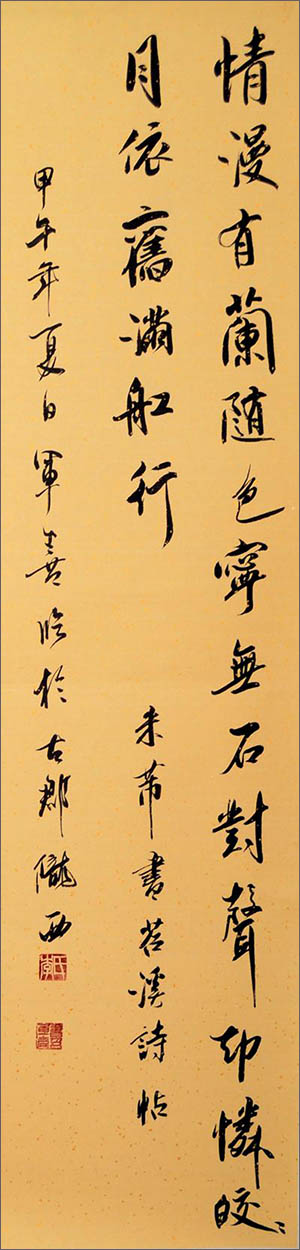 情漫有蘭随色寧無石對聲却憐皎〻
月依舊滿舡行
米芾書苕溪詩帖
甲午年夏日軍臨於古郡隴西